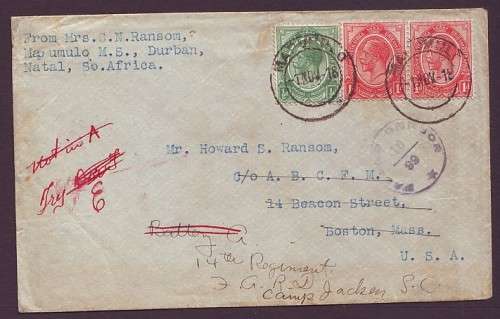 From Mrs.C.N.Ransom,
Mapumulo M.S., Durban,
Natal, So.Africa.
MAPUMULO
1 NOV 18
MAPUMULO
1 NOV 18
Not in A
Try
E
Mr. Howard S. Ransom,
C/o A. B. C. F. M.
14 Beacon Street,
Boston, Mass.
U. S. A.
Battery A
14th Regiment
F. A. R. D.
Camp Jackson S.C.